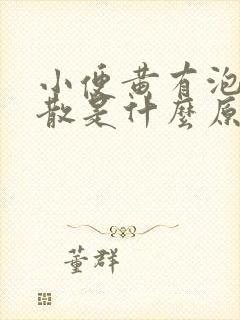 小便黄有泡
散是什麼原
董群